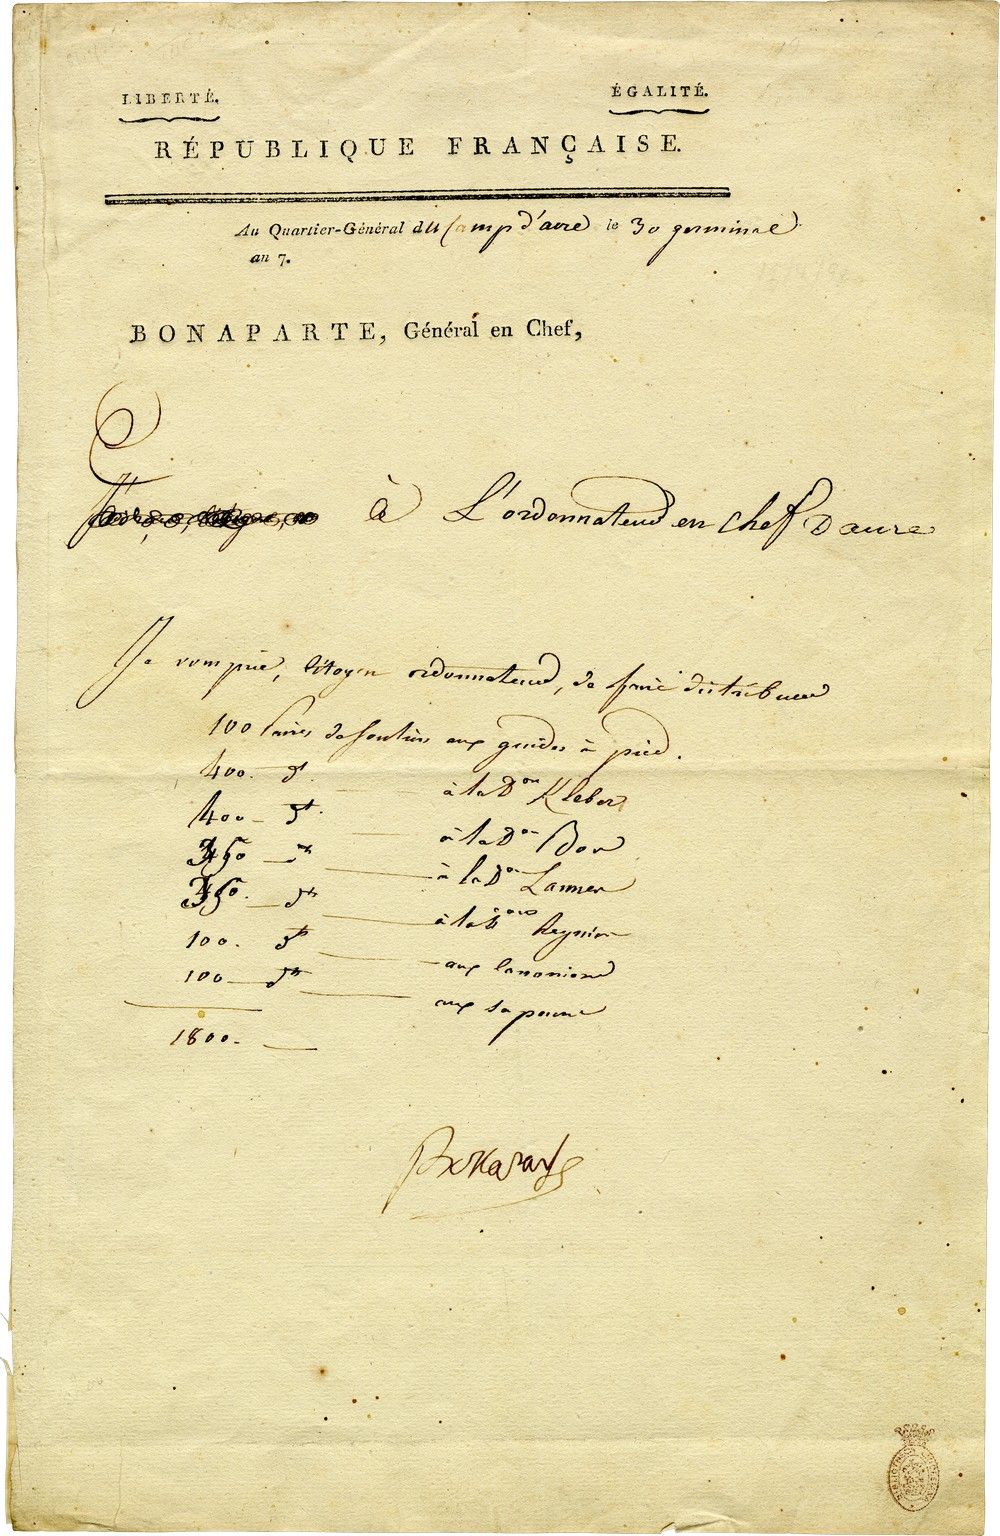 LIBERTÉ. ÉGALITÉ.
RÉPUBLIQUE FRANÇAISE.
Au Quartier-Général du Camp d'acre le 30 germinal
an 7.
BONAPARTE, Général en Chef,
à L'ordonnateur en chef Daure
Je vous prie, Citoyen ordonnateur, de faire distribuer
100 Paires de souliers aux guides à pied.
400. dt. à la Don Kleber
400 — dt. à la Don Bon
350 — dt à la Don Lannes
350. — dt à la Don Reynier
100. dt aux canoniers
100 — dt aux sapeurs
1800. —
Bonaparte